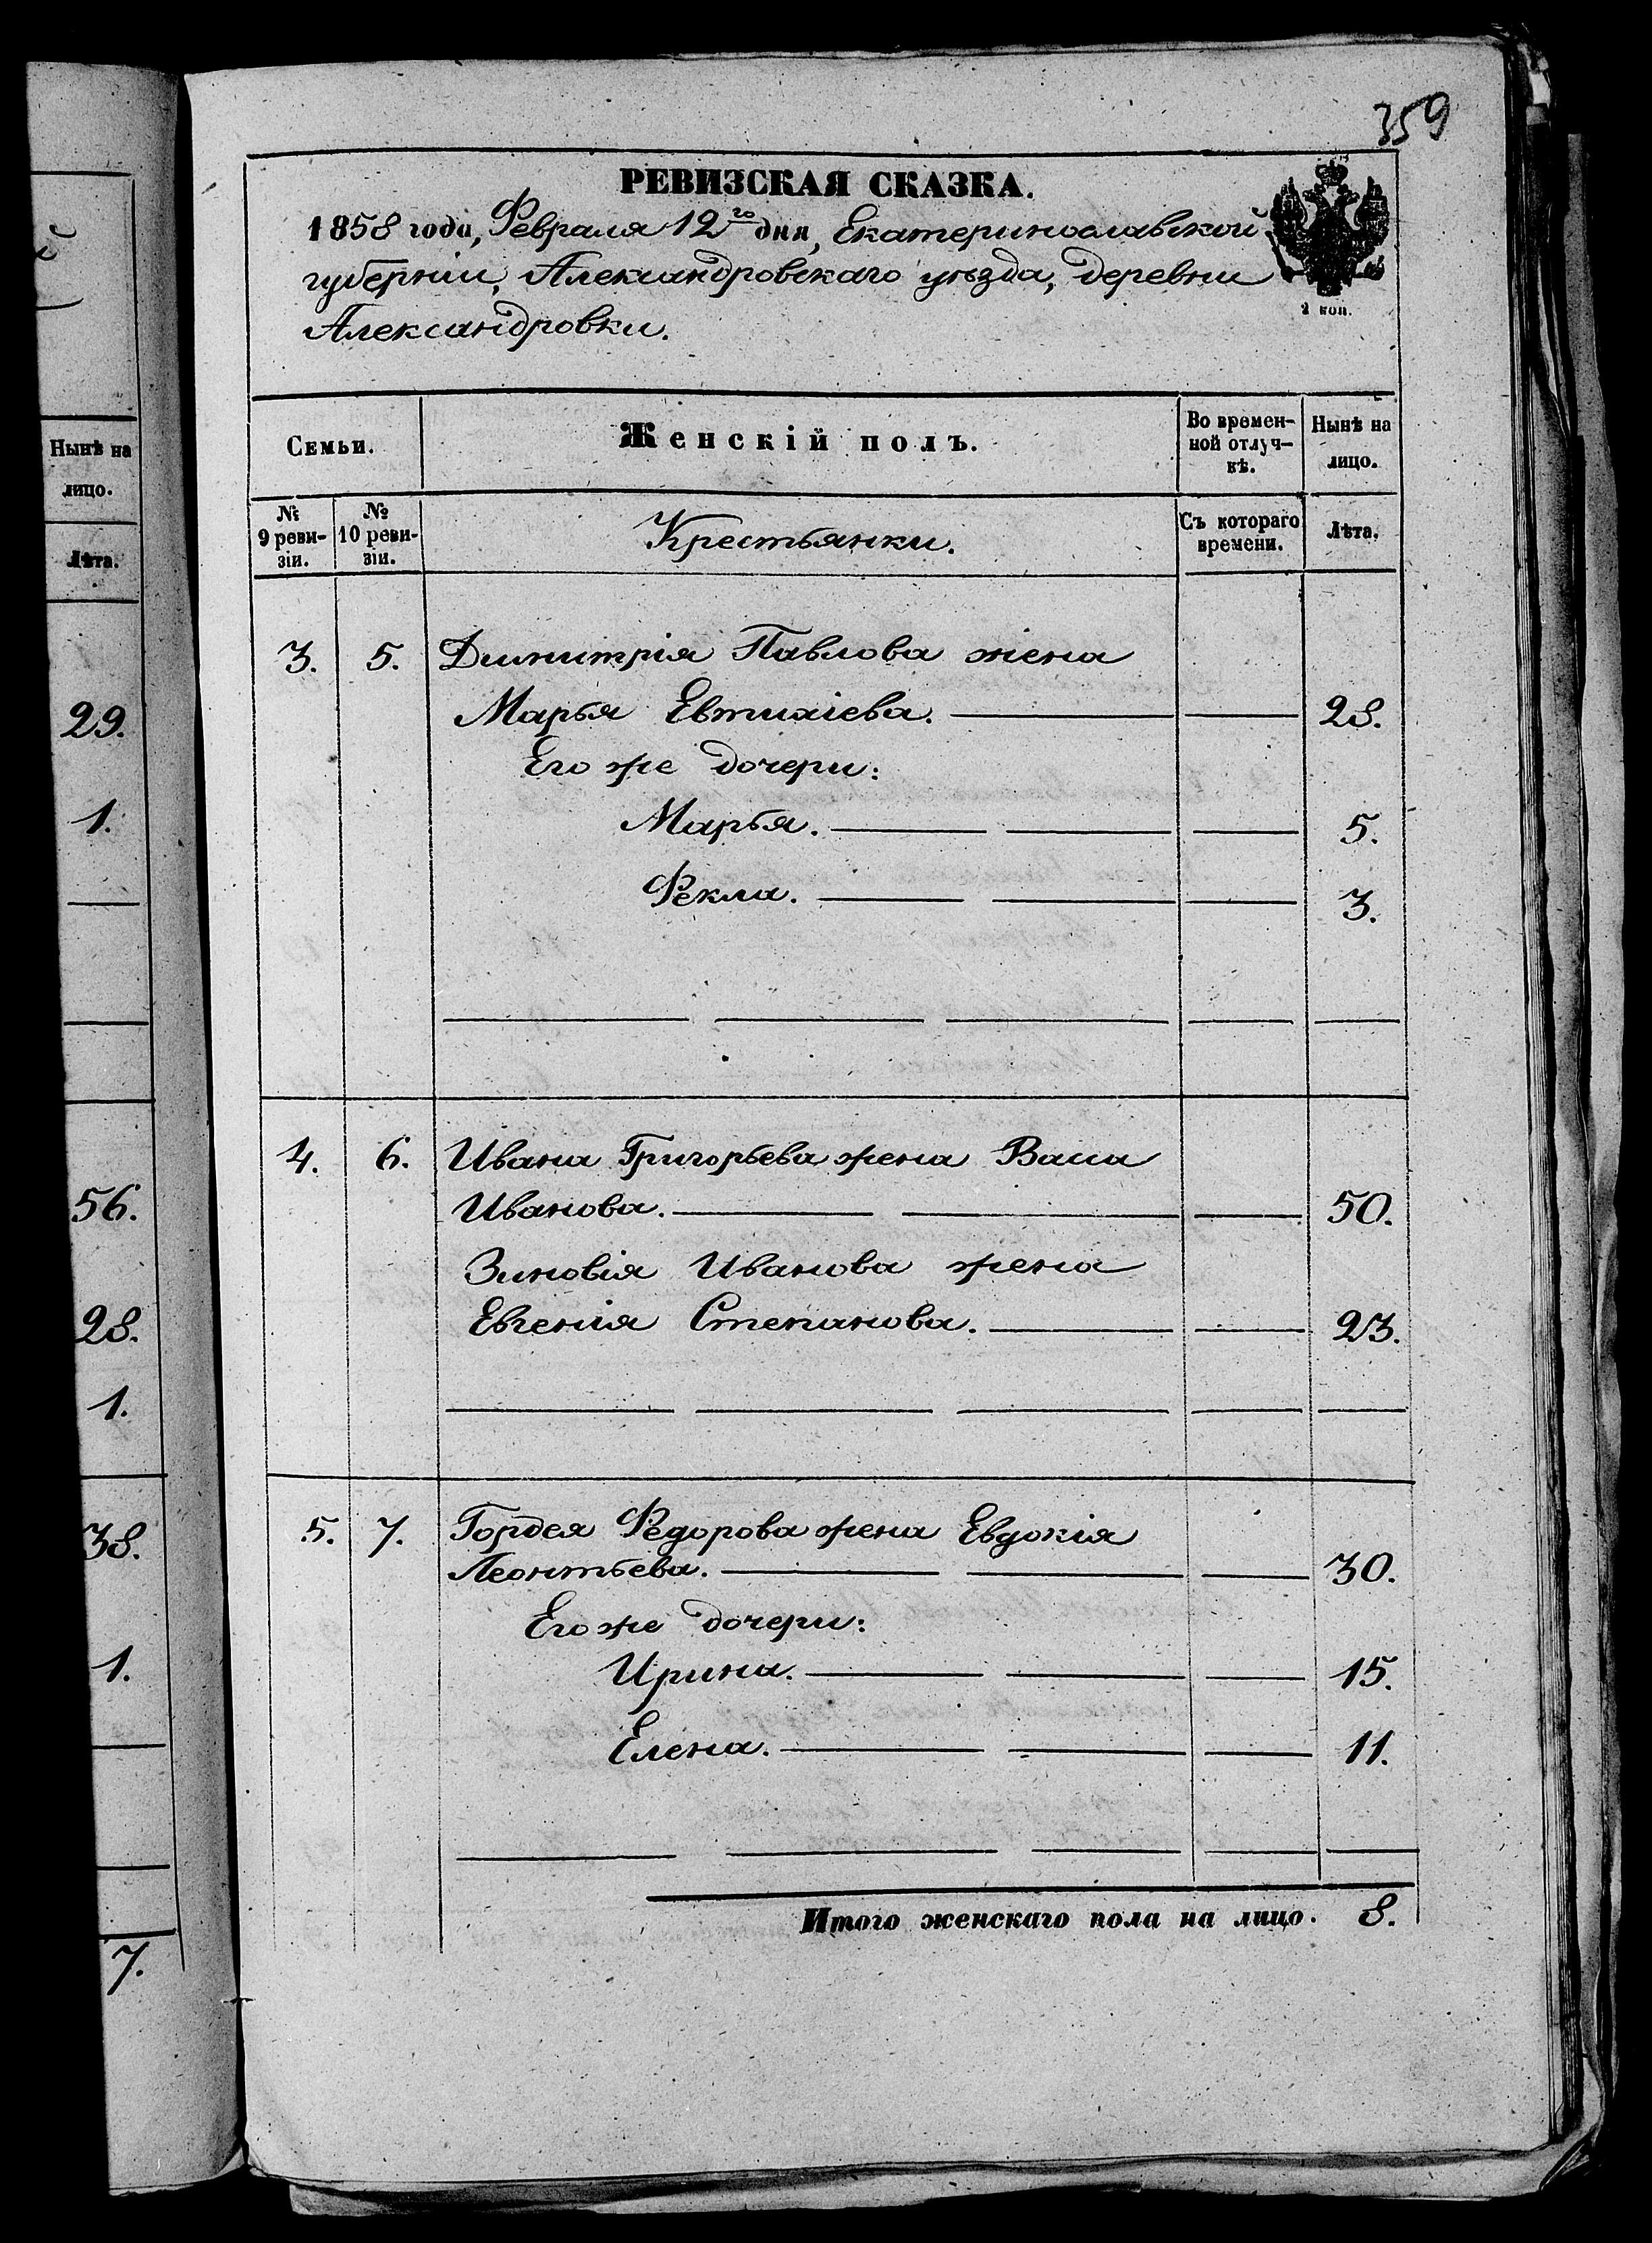 й
Нынѣ на
лицо.
Лѣта.
29.
1.
56.
28.
1.
38.
1.
7.
359
РЕВИЗСКАЯ СКАЗКА.
1858 года, Февраля 12го дня, Екатеринославской
губерніи, Александровскаго уѣзда, деревни
Александровки.
2 коп.
Семьи.
Женскій полъ.
Во времен-
ной отлуч-
кѣ.
Нынѣ на
лицо.
№
9 реви-
зіи.
№
10 реви-
зіи.
Крестьянки.
Съ котораго
времени.
Лѣта.
3. 5. Димитрія Павлова жена
Марья Евтихіева. 28.
Его же дочери:
Марья. 5.
Фекла. 3.
4. 6. Ивана Григорьева жена Васса
Иванова. 50.
Зиновія Иванова жена
Евгенія Степанова. 23.
5. 7. Гордея Федорова жена Евдокія
Леонтьева. 30.
Его же дочери:
Ирина. 15.
Елена. 11.
Итого женскаго пола на лицо. 8.